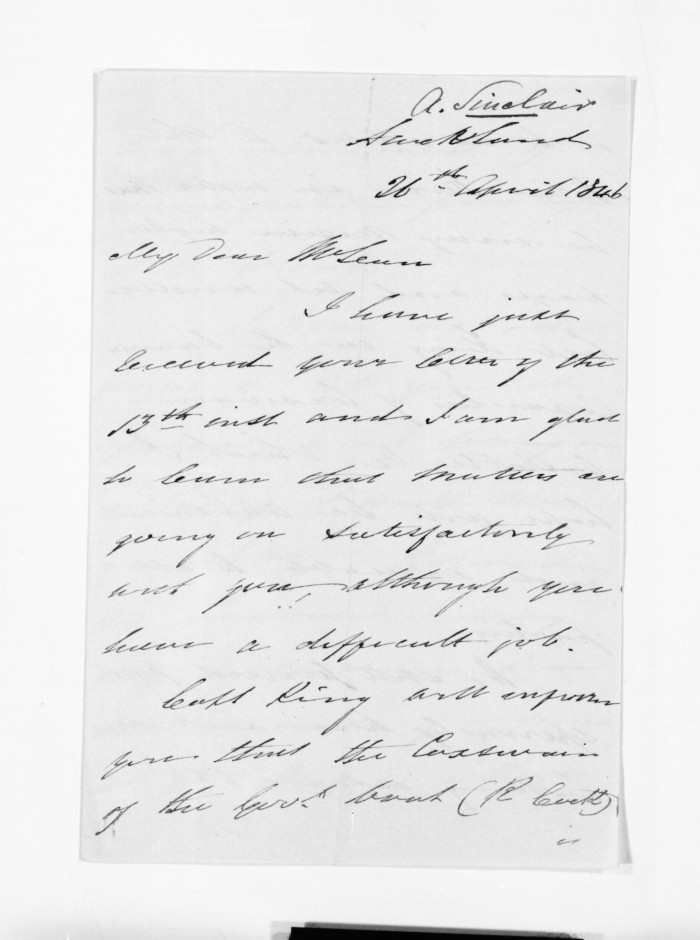 A. Sinclair
Auckland
26th April 1846
My Dear McLean
I have just
received your letter of the
13th inst and I am glad
to learn that matters are
going on satisfactorily
with you, although you
have a difficult job.
Capt King will inform
you that the Coxswain
of the Govt boat (R
is